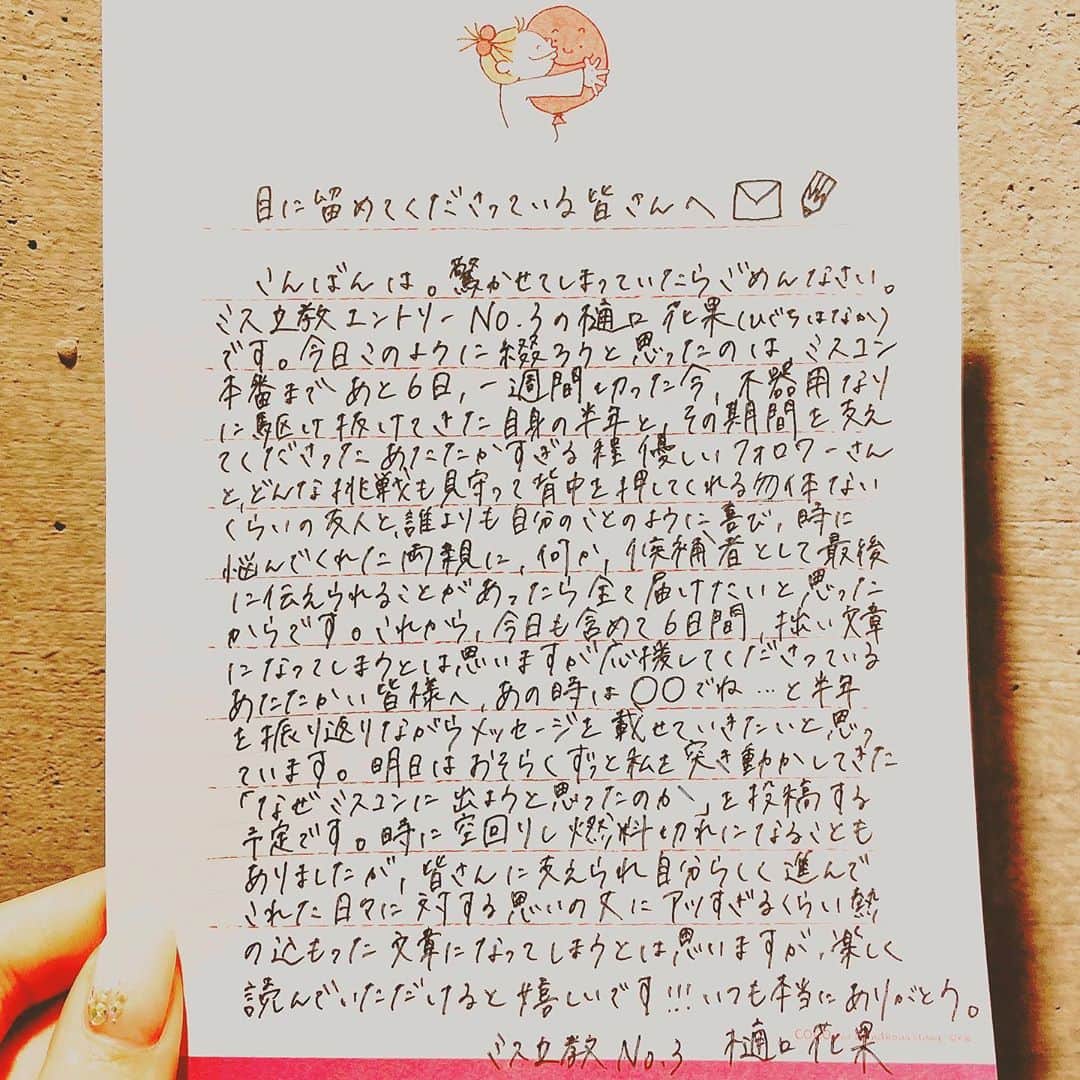 目に留めてくださっている皆さんへ
こんばんは。驚かせてしまっていたらごめんなさい。
ミス立教エントリーNo.3の樋口花果(ひぐちはなか)
です。今日このように綴ろうと思ったのは、ミスコン
本番まであと6日,一週間切った今,不器用なり
に駆け抜けてきた自身の半年と,その期間を支え
てくださったあたたかすぎる程優しいフォロワーさん
と,どんな挑戦も見守って背中を押してくれる勿体ない
くらいの友人と,誰よりも自分のことのように喜び,時に
悩んでくれた両親に,何か,候補者として最後
に伝えられることがあったら全て届けたいと思った
からです。これから,今日も含めて6日間,拙い文章
になってしまうとは思いますが応援してくださっている
あたたかい皆様へ,あの時は〇〇でね…と半年
を振り返りながらメッセージを載せていきたいと思っ
ています。明日はおそらくずっと私を突き動かしてきた
「なぜミスコンに出ようと思ったのか」を投稿する
予定です。時に空回りし燃料切れになることも
ありましたが,皆さんに支えられ自分らしく進んで
これた日々に対する思いの丈にアツすぎるくらい熱
の込もった文章になってしまうとは思いますが,楽しく
読んでいただけると嬉しいです!!!いつも本当にありがとう。
ミス立教No.3 樋口花果